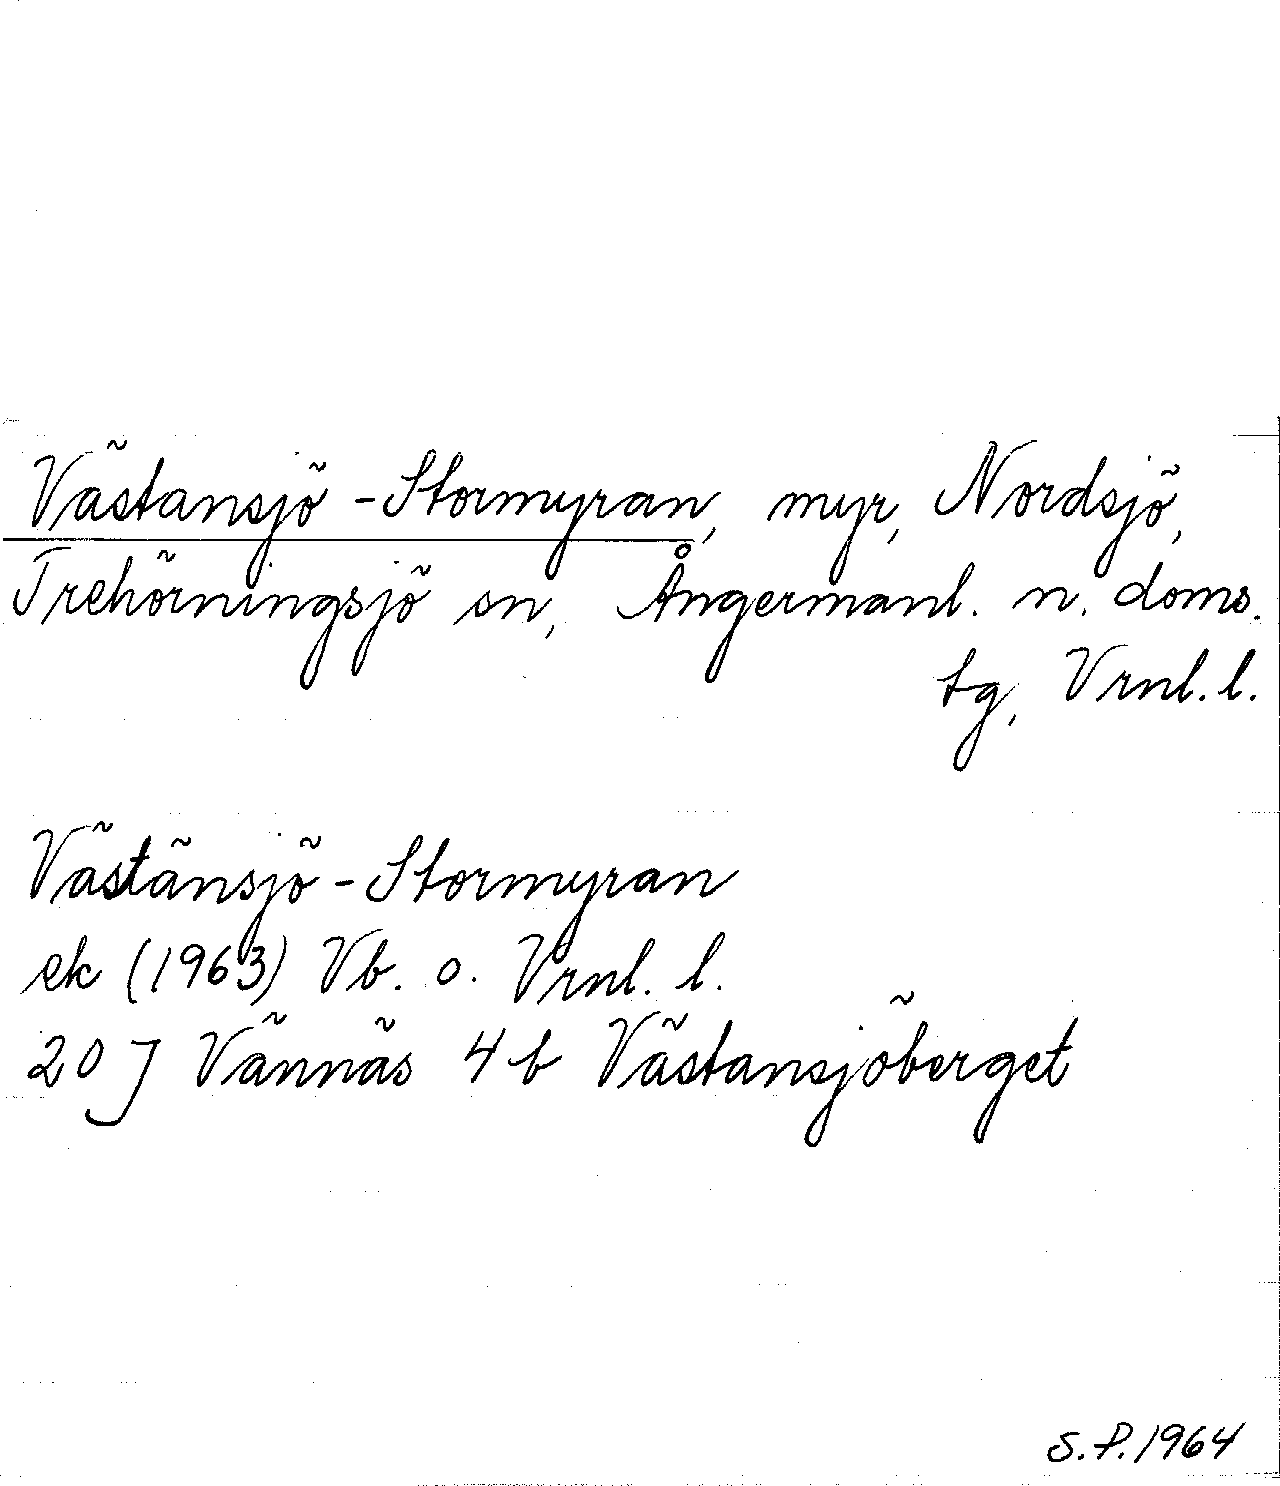 Västansjö-Stormyran, myr, Nordsjö,
Trehörningsjö sn, Ångermanl. n. doms.
tg, Vrnl. l.
Västänsjö-Stormyran
ek (1963) Vb. o. Vrnl. l.
20 J Vännäs 4 b Västansjöberget
S.P. 1964